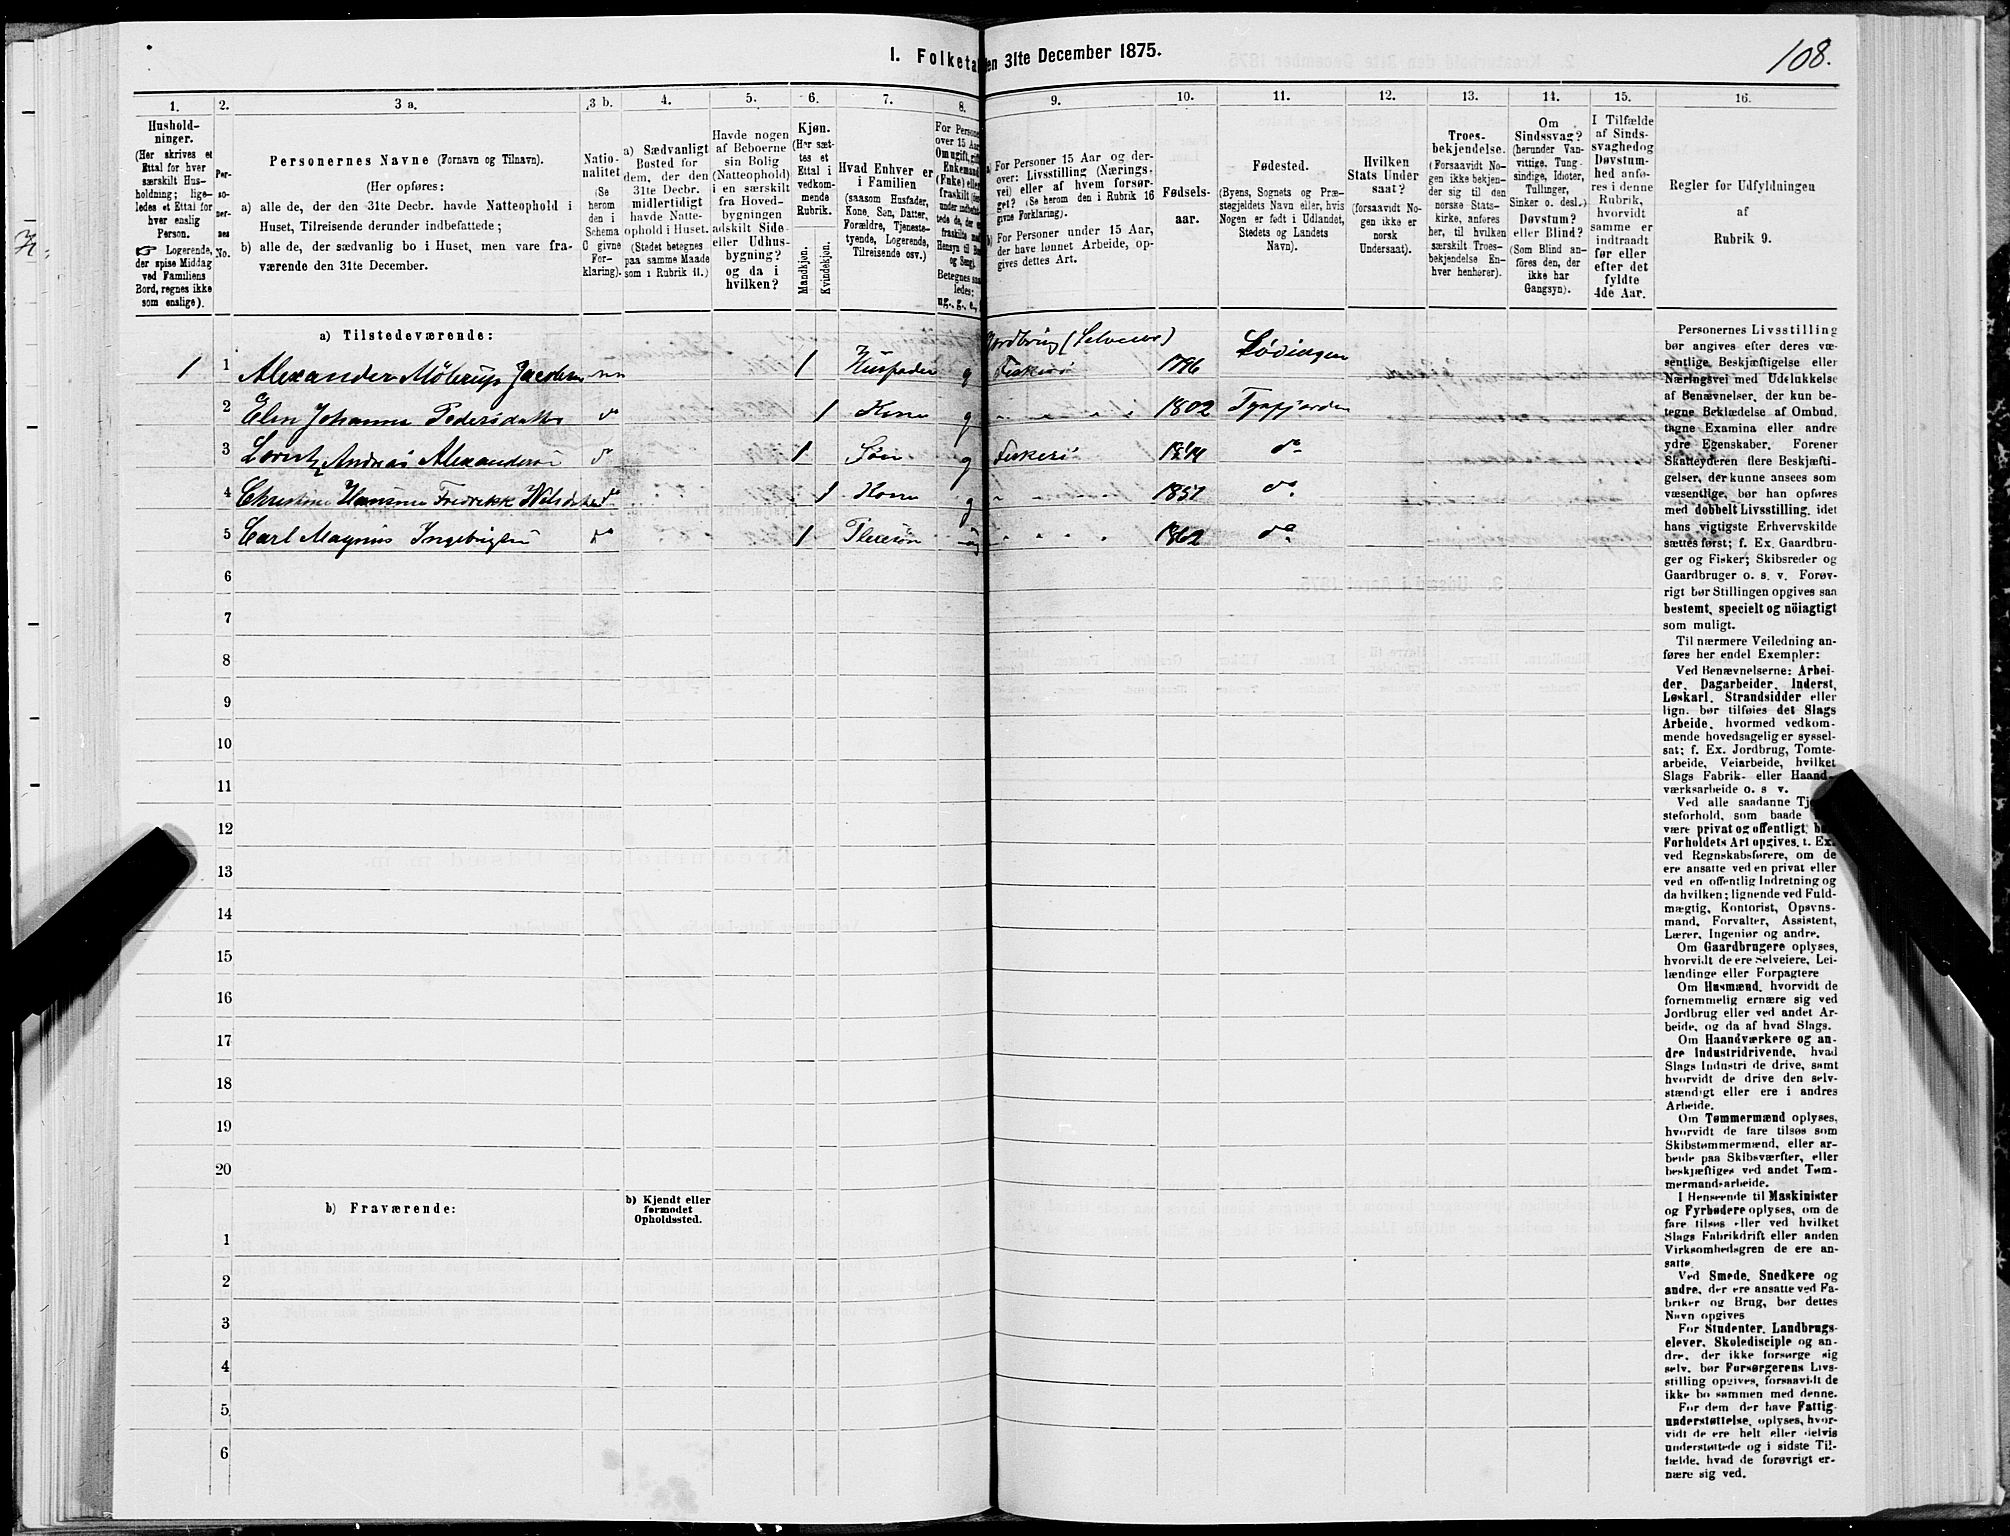 I. Folketa en 31te December 1875.
108.
1. 2. 3 a. 3 b. 4. 5. 6. 7. 8. 9. 10. 11. 12. 13. 14. 15. 16.
Hushold-
ninger.
(Her skrives et
Ettal for hver
særskilt Hus-
holdning; lige-
ledes et Ettal for
hver enslig
Person.
☞ Logerende,
der spise Middag
ved Familiens
Bord, regnes ikke
som enslige).
Per-
so-
ner-
nes
No.
Personernes Navne (Fornavn og Tilnavn).
(Her opføres:
a) alle de, der den 31te Decbr. havde Natteophold i
Huset, Tilreisende derunder indbefattede;
b) alle de, der sædvanlig bo i Huset, men vare fra-
værende den 31te December.
Natio-
nalitet
(Se
herom
den i
Schema
C givne
For-
klaring).
a) Sædvanligt
Bosted for
dem, der den
31te Decbr.
midlertidigt
havde Natte-
ophold i Huset.
(Stedet betegnes
paa samme Maade
som i Rubrik 11.)
Havde nogen
af Beboerne
sin Bolig
(Natteophold)
i en særskilt
fra Hoved-
bygningen
adskilt Side-
eller Udhus-
bygning?
og da i
hvilken?
Kjøn.
(Her sæt-
tes et
Ettal i
vedkom-
mende
Rubrik.
Mandkjøn.
Kvindekjøn.
Hvad Enhver er
i Familien
(saasom Husfader,
Kone, Søn, Datter,
Forældre, Tjeneste-
tyende, Logerende,
Tilreisende osv.)
For Persone
over 15 Aar
Om ugift, gift
Enkemand
(Enke) eller
fraskilt
Betegnes saa
ledes:
ug., g., e.,
a) For Personer 15 Aar og der-
over: Livsstilling (Nærings-
vei) eller af hvem forsør-
get? (Se herom den i Rubrik 16
givne Forklaring).
b) For Personer under 15 Aar,
der have lønnet Arbeide, op-
gives dettes Art.
Fødsels-
aar.
Fødested.
(Byens, Sognets og Præ-
stegjeldets Navn eller, hvis
Nogen er født i Udlandet,
Stedets og Landets
Navn).
Hvilken
Stats Under
saat?
(forsaavidt No-
gen ikke er
norsk
Undersaat).
Troes-
bekjendelse.
(Forsaavidt No-
gen ikke bekjen-
der sig til den
norske Stats-
kirke, anføres
her, til hvilken
særskilt Troes-
bekjendelse En-
hver henhører).
Om
Sindssvag?
(herunder Van-
vittige, Tung-
sindige, Idioter,
Tullinger,
Sinker o. desl.)
Døvstum?
eller Blind?
(Som Blind an-
føres den, der
ikke har
Gangsyn).
I Tilfælde
af Sinds-
svaghed og
Døvstum-
hed anfø-
res i denne
Rubrik,
hvorvidt
samme er
indtraadt
før eller
efter det
fyldte
4de Aar.
Regler for Udfyldningen
af
Rubrik 9.
a) Tilstedeværende:
1 1 Alexander Møterup Jacobsen nn 1 Husfader g Jordbrug (Selveier) Fisker 1796 Lødingen
2 Elen Johanna Pedersdatter do 1 Kone g 1802 Tysfjorden
3 Lorentz Andreas Alexandersen do 1 Søn g Fiskeri 1844 do
4 Christine Hansine Fredrikk Nilsdatter do 1 Kone g 1851 do
5 Carl Magnus Ingebrigtsen do 1 Pleiesøn ug 1862 do
6
7
8
9
10
11
12
13
14
15
16
17
18
19
20
b) Fraværende:
b) Kjendt eller
formodet
Opholdssted.
1
2
3
4
5
6
Personernes Livsstilling
bør angives efter deres væ-
sentlige Beskjæftigelse eller
Næringsvei med Udelukkelse
af Benævnelser, der kun be-
tegne Beklædelse af Ombud,
tagne Examina eller andre
ydre Egenskaber. Forener
Skatteyderen flere Beskjæfti-
gelser, der kunne ansees som
væsentlige, bør han opføres
med dobbelt Livsstilling, idet
hans vigtigste Erhvervskilde
sættes først; f. Ex. Gaardbru-
ger og Fisker; Skibsreder og
Gaardbruger o. s. v. Forøv-
rigt bør Stillingen opgives saa
bestemt, specielt og nöiagtigt
som muligt.
Til nærmere Veiledning an-
føres her endel Exempler:
Ved Benævnelserne: Arbei-
der, Dagarbeider, Inderst,
Løskarl, Strandsidder eller
lign. bør tilføies det Slags
Arbeide, hvormed vedkom-
mende hovedsagelig er syssel-
sat; f. Ex. Jordbrug, Tomte-
arbeide, Veiarbeide, hvilket
Slags Fabrik- eller Haand-
værksarbeide o. s v.
Ved alle saadanne Tje
steforhold, som baade
være privat og offentligt, bør
Forholdets Art opgives, t. Ex.
ved Regnskabsførere, om de
ere ansatte ved en privat eller
ved en offentlig Indretning og
da hvilken; lignende ved Fuld-
mægtig, Kontorist, Opsyns-
mand, Forvalter, Assistent,
Lærer, Ingeniør og andre.
Om Gaardbrugere oplyses,
hvorvidt de ere Selveiere, Lei-
lændinge eller Forpagtere
Om Husmænd, hvorvidt de
fornemmelig ernære sig ved
Jordbrug eller ved andet Ar-
beide, og da af hvad Slags.
Om Haandværkere og an-
dre Industridrivende, hvad
Slags Industri de drive, samt
hvorvidt de drive den selv-
stændigt eller ere i andres
Arbeide.
Om Tømmermænd oplyses,
hvorvidt de fare tilsøs som
Skibstømmermænd, eller ar-
beide paa Skibsværfter, eller
beskjæftiges ved andet Tøm-
mermandsarbeide.
I Henseende til Maskinister
og Fyrbødere oplyses, om de
fare tilsøs eller ved hvilket
Slags Fabrikdrift eller anden
Virksomhedsgren de ere an-
satte.
Ved Smede, Snedkere og
andre, der ere ansatte ved Fa-
briker og Brug, bør dettes
Navn opgives
For Studenter, Landbrugs-
elever, Skoledisciple og an-
dre, der ikke forsørge sig
selv, bør Forsørgerens Livs-
stilling opgives, forsaavidt de
ikke bo sammen med denne.
For dem der have Fattig-
understøttelse, oplyses, hvor-
vidt de ere helt eller delvis
understøttede og i sidste Til-
fælde, hvad de forøvrigt er-
nære sig ved.